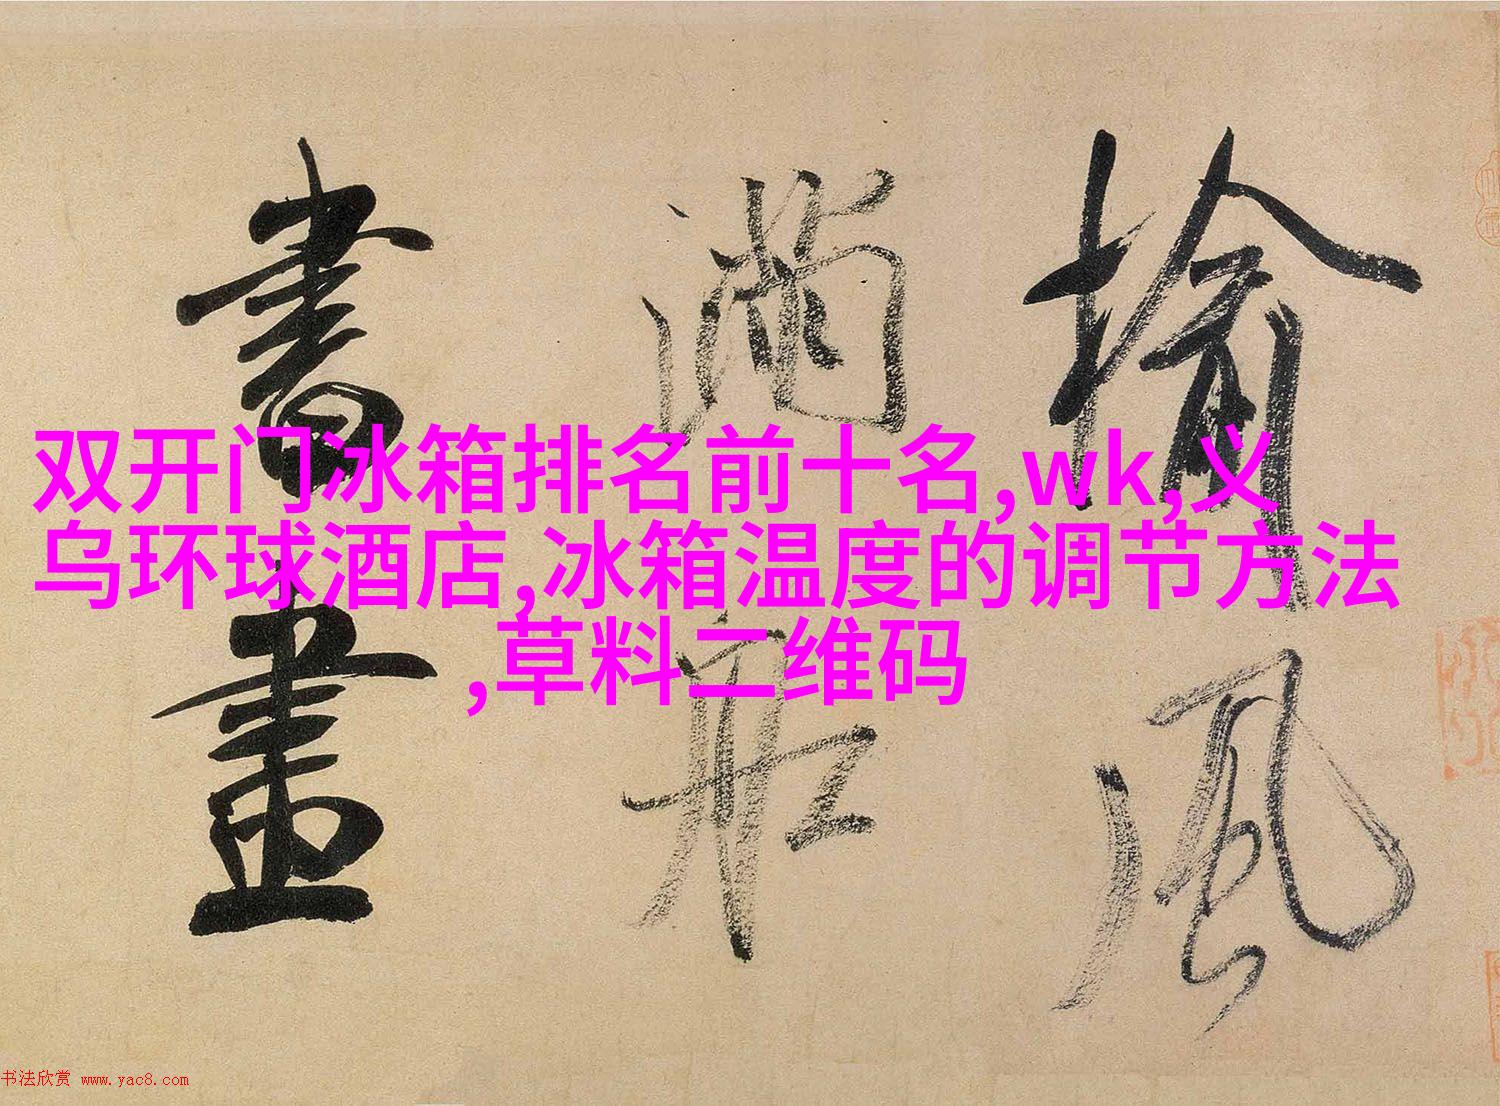 榆風
滿船
書畫
双开门冰箱排名前十名,wk,义
乌环球酒店,冰箱温度的调节方法
,草料二维码
书法欣赏 www.yac8.com